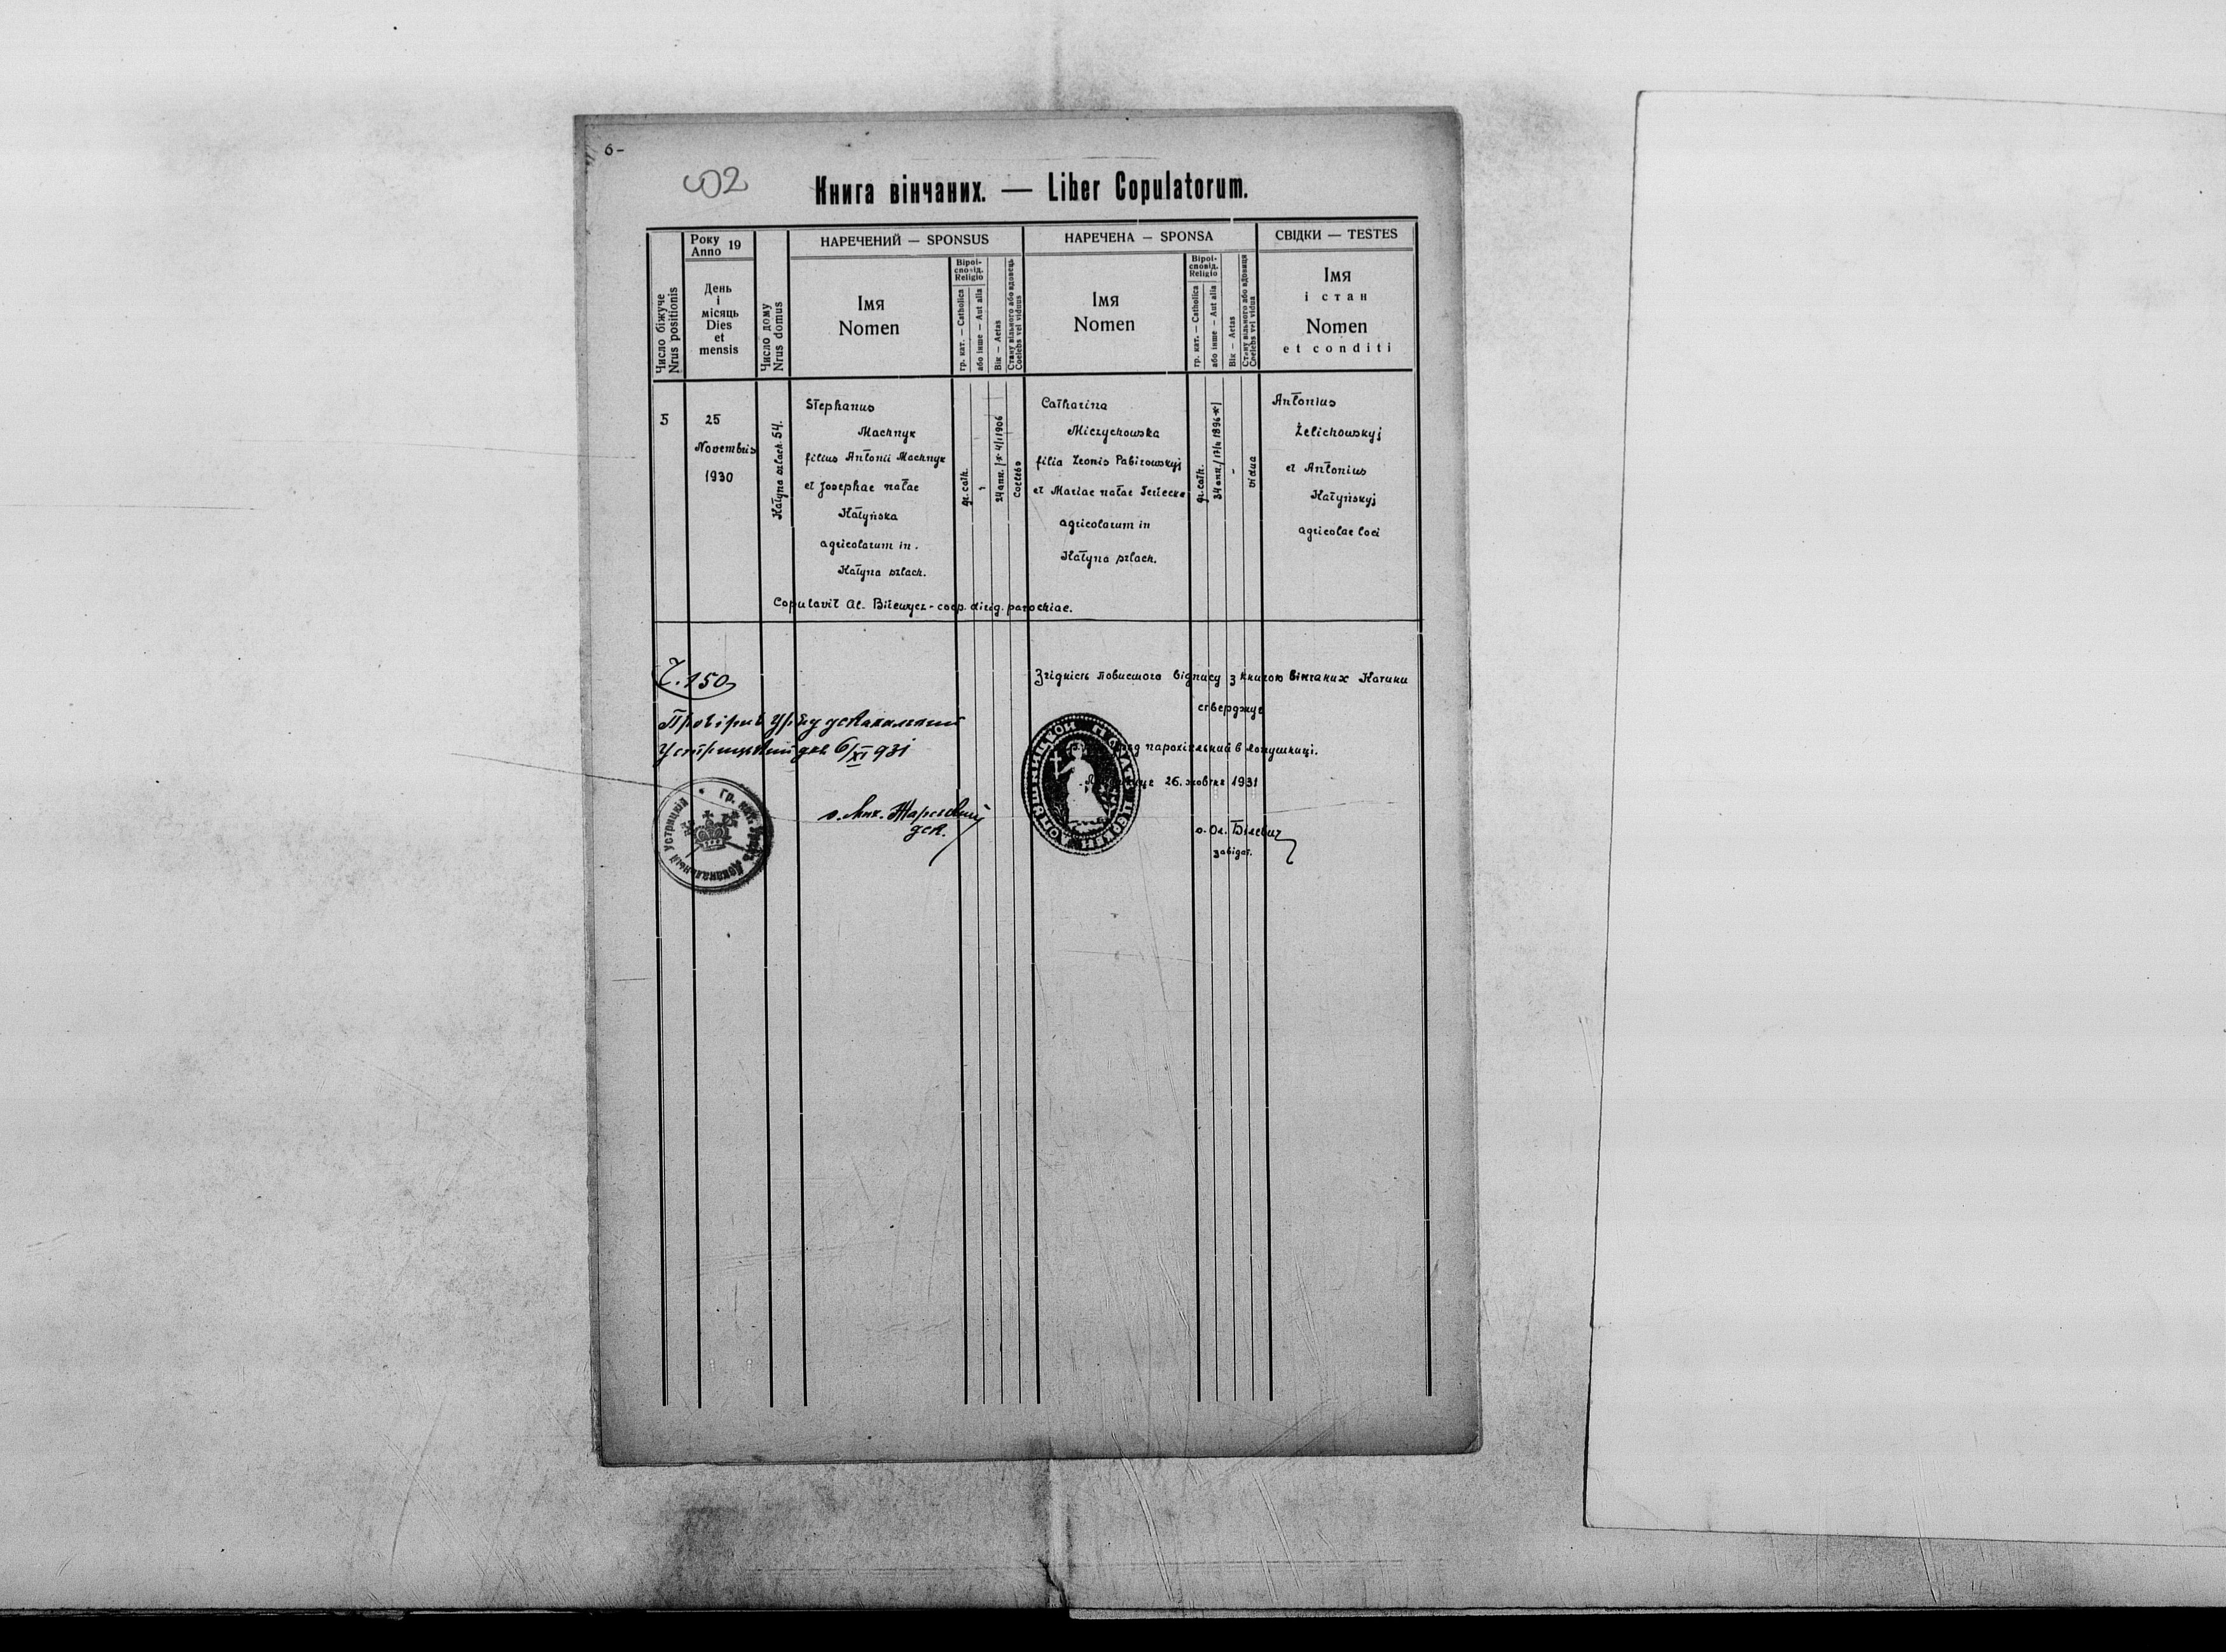 6-
502
Книга вінчаних. — Liber Copulatorum.
Число біжуче
Nrus positionis
Року
Anno 19
День
і
місяць
Dies
et
mensis
Число дому
Nrus domus
НАРЕЧЕНИЙ — SPONSUS
Імя
Nomen
Віроі-
сповід.
Religio
гр. кат. — Catholica
або інше — Aut alia
Вік — Aetas
Стану вільного або вдовець
Coelebs vel viduus
НАРЕЧЕНА — SPONSA
Імя
Nomen
Віроі-
сповід.
Religio
гр. кат. — Catholica
або інше — Aut alia
Вік — Aetas
Стану вільного або вдовиця
Coelebs vel vidua
СВІДКИ — TESTES
Імя
і стан
Nomen
et conditi
5
25
Novembris
1930
Katyna szlach. 54.
Stephanus
Machnyk
filius Antonii Machnyk
et Josephae natae
Katyńska
agricolarum in.
Katyna szlach.
gr. cath.
24 ann. /* 4/1 1906
Coelebs
Catharina
Miczychowska
filia Leonis Pabirowskyj
et Mariae natae Terlecka
agricolarum in
Katyna szlach.
gr. cath.
34 ann. / 17/2 1896 */
-
vidua
Antonius
Żelichowskyj
et Antonius
Katyńskyj
agricolae loci
Copulavit Al. Bilewycz - coop. dirig. parochiae.
Ч. 150
Провірив Уряд деканальний
Устрицький дня 6/XI 931
о. Ант.
дек.
Гр. кат. Урядъ Деканальный Устрицкій
Згідність повисшого відпису з книгою вінчаних Катини
стверджує
Уряд парохіяльний в Лопушниці.
26. жовтня 1931
о. Ол. Білевич
завідат.